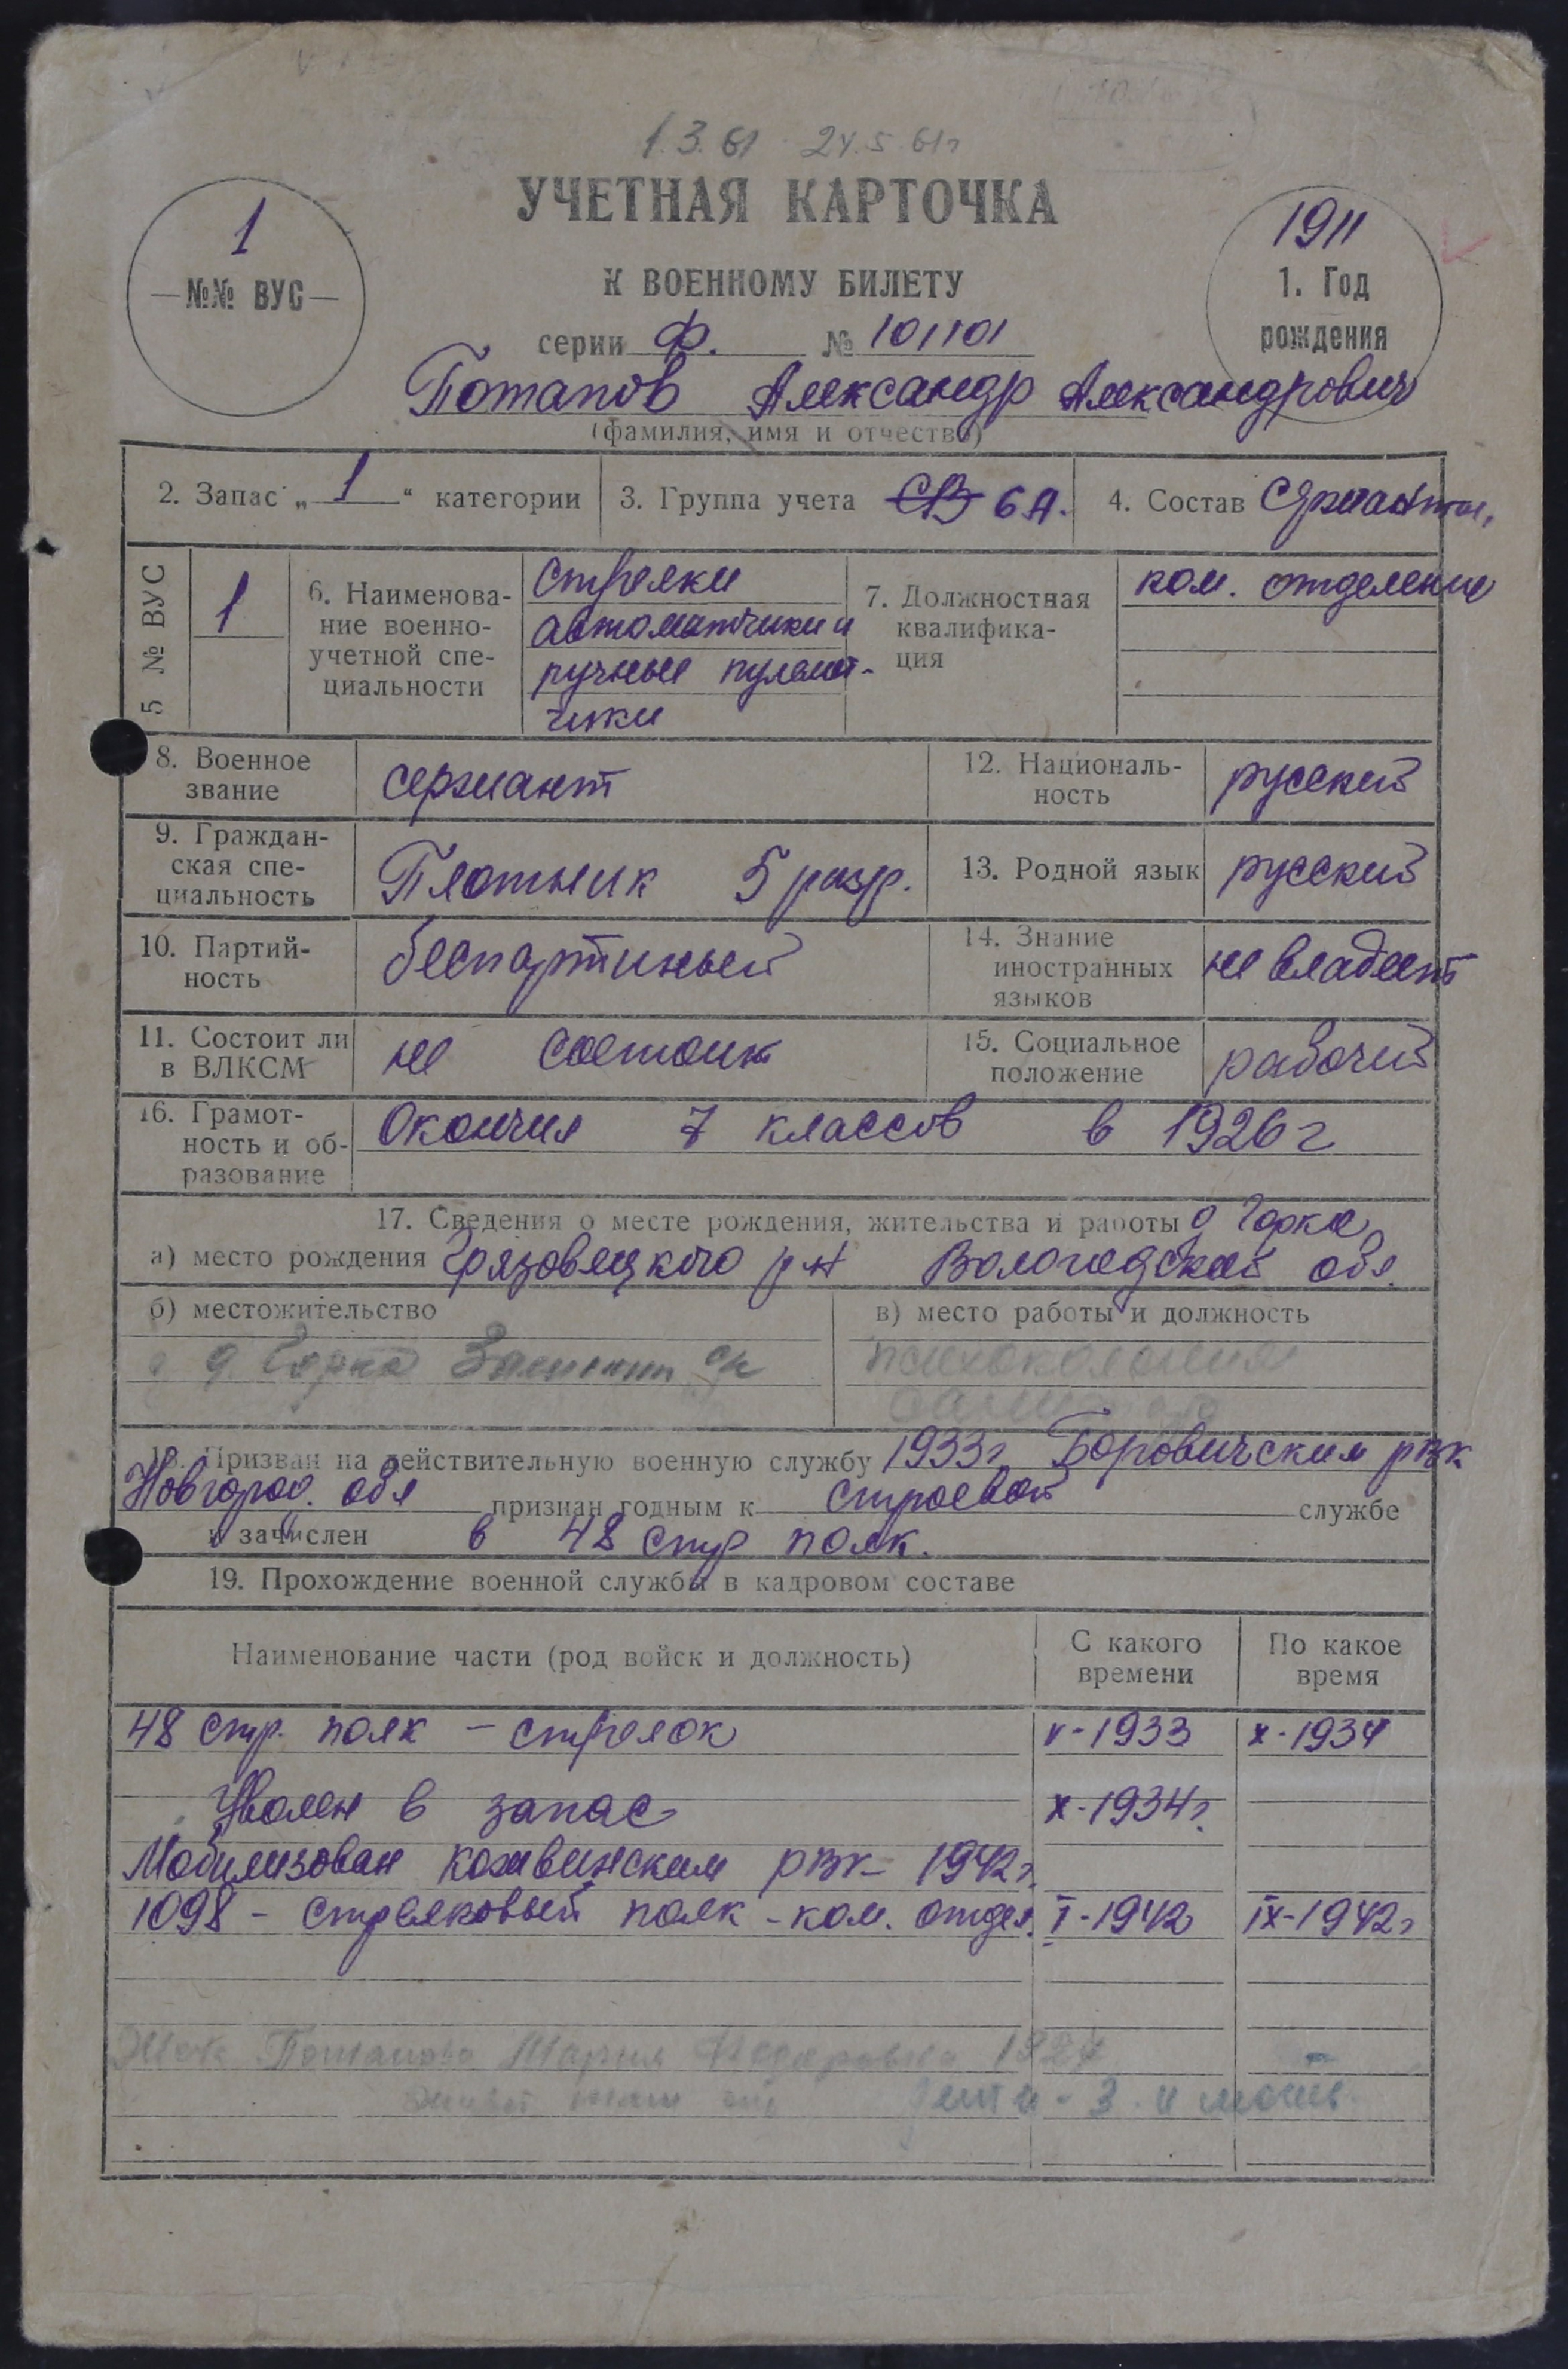 1.3.61 24.5.61г
УЧЕТНАЯ КАРТОЧКА
К ВОЕННОМУ БИЛЕТУ
1
№№ ВУС
1911
1. Год
рождения
серии Ф. № 101101
Потапов Александр Александрович
(фамилия, имя и отчество)
2. Запас „1“ категории
3. Группа учета СВ 6А.
4. Состав
5 № ВУС
1
6. Наименова-
ние военно-
учетной спе-
циальности
стрелки
автоматчики и
ручные пулемет-
чики
7. Должностная
квалифика-
ция
ком. отделения
8. Военное
звание
сержант
12. Националь-
ность
русский
9. Граждан-
ская спе-
циальность
Плотник 5 разр.
13. Родной язык
русский
10. Партий-
ность
беспартиный
14. Знание
иностранных
языков
не владеет
11. Состоит ли
в ВЛКСМ
не состоит
15. Социальное
положение
рабочий
16. Грамот-
ность и об-
разование
Окончил 7 классов в 1926 г
17. Сведения о месте рождения, жительства и работы д Горка
а) место рождения Грязовецкого р-н Вологодской обл.
б) местожительство
д Горка с/с
в) место работы и должность
психоколония
18. Призван на действительную военную службу 1933 г. Боровичским рвк
Новгород. обл признан годным к строевой службе
и зачислен в 48 стр полк.
19. Прохождение военной службы в кадровом составе
Наименование части (род войск и должность)
С какого
времени
По какое
время
48 стр. полк – стрелок V-1933 X-1934
Уволен в запас X-1934г.
Мобилизован кожвинским рвк – 1942г.
1098 – стрелковый полк – ком. отдел. I-1942 IX-1942г
Жена Потапова Мария Федоровна 1927
дети - 3 и мать